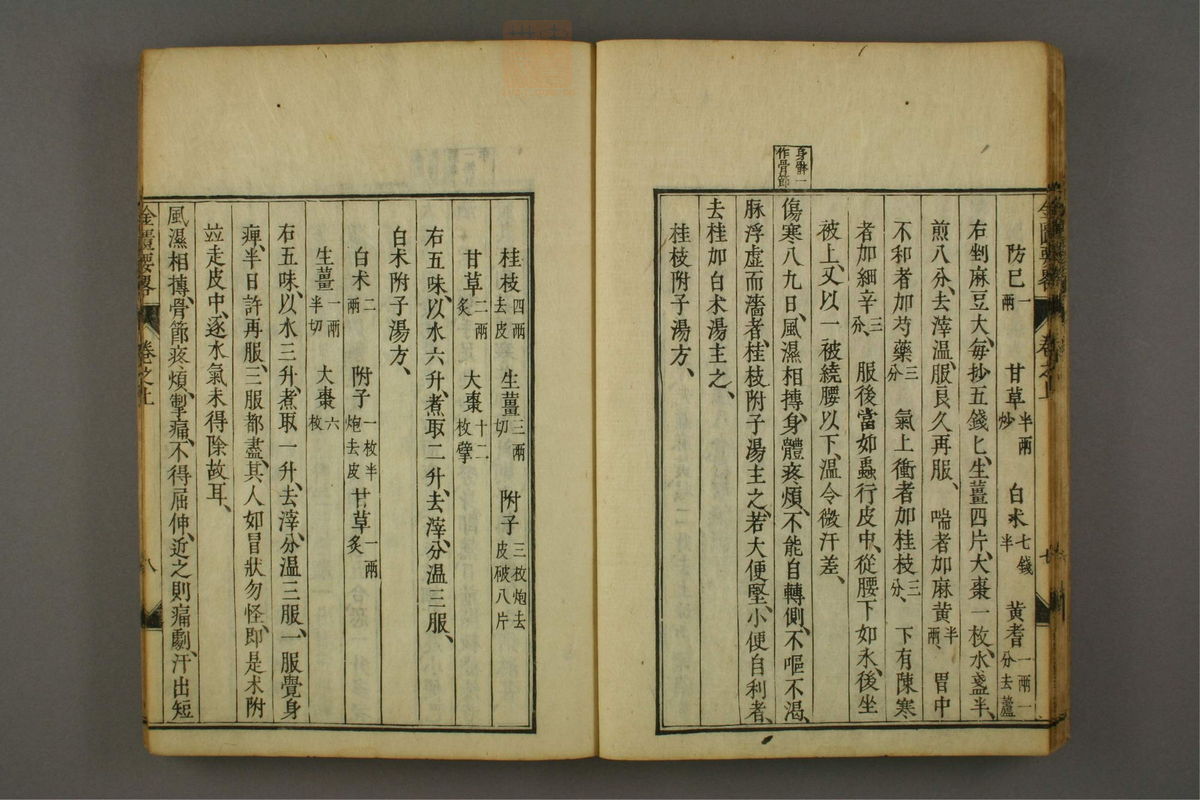 身體一
作骨節
防已一兩 甘草半兩炒 白朮七錢半 黃耆一兩一分去蘆
右剉麻豆大、每抄五錢匕、生薑四片、大棗一枚、水盞半、
煎八分、去滓溫、服良久再服、 喘者加麻黃半兩、 胃中
不和者加芍藥三分 氣上衝者加桂枝三分、 下有陳寒
者加細辛三分、 服後當如蟲行皮中、從腰下如氷、後坐
被上、又以一被繞腰以下、溫令微汗差、
傷寒八九日、風濕相摶、身體疼煩、不能自轉側、不嘔不渴、
脉浮虛而濇者、桂枝附子湯主之、若大便堅、小便自利者、
去桂加白朮湯主之、
桂枝附子湯方、
桂枝四兩去皮 生薑三兩切 附子三枚炮去皮破八片
甘草二兩炙 大棗十二枚擘
右五味、以水六升、煮取二升、去滓、分溫三服、
白朮附子湯方、
白朮二兩 附子一枚半炮去皮 甘草一兩炙
生薑一兩半切 大棗六枚
右五味、以水三升、煮取一升、去滓、分溫三服、一服覺身
痺、半日許再服、三服都盡、其人如冒狀勿怪、即是朮附
竝走皮中、逐水氣未得除故耳、
風濕相摶、骨節疼煩、掣痛、不得屈伸、近之則痛劇、汗出短
金匱要畧 卷之上 八